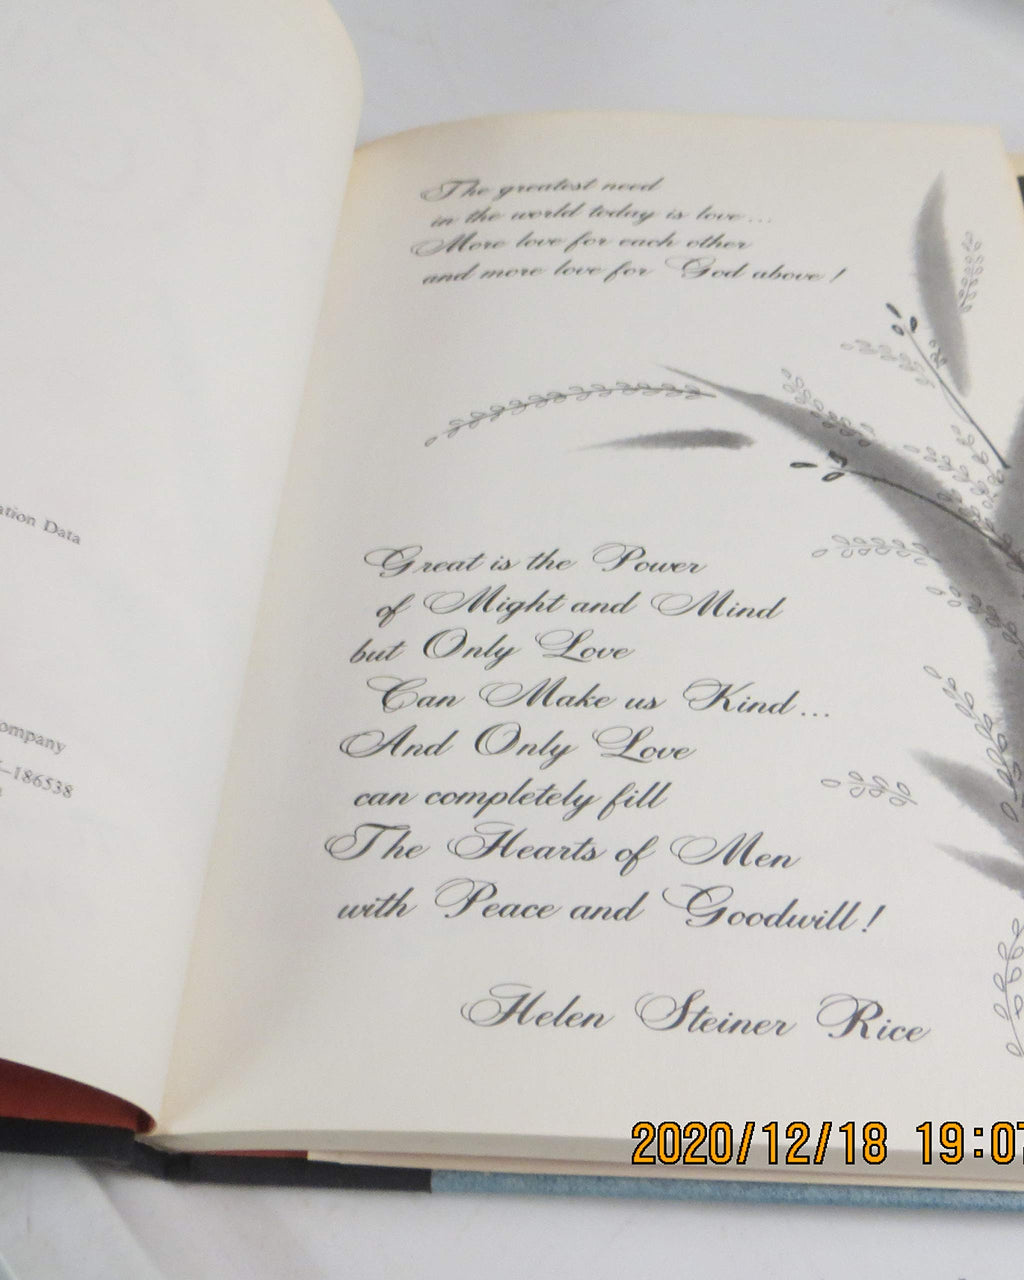 ation Data
ompany
–186538
The greatest need
in the world today is love...
More love for each other
and more love for God above!
Great is the Power
of Might and Mind
but Only Love
Can Make us Kind...
And Only Love
can completely fill
The Hearts of Men
with Peace and Goodwill!
Helen Steiner Rice
2020/12/18 19:07